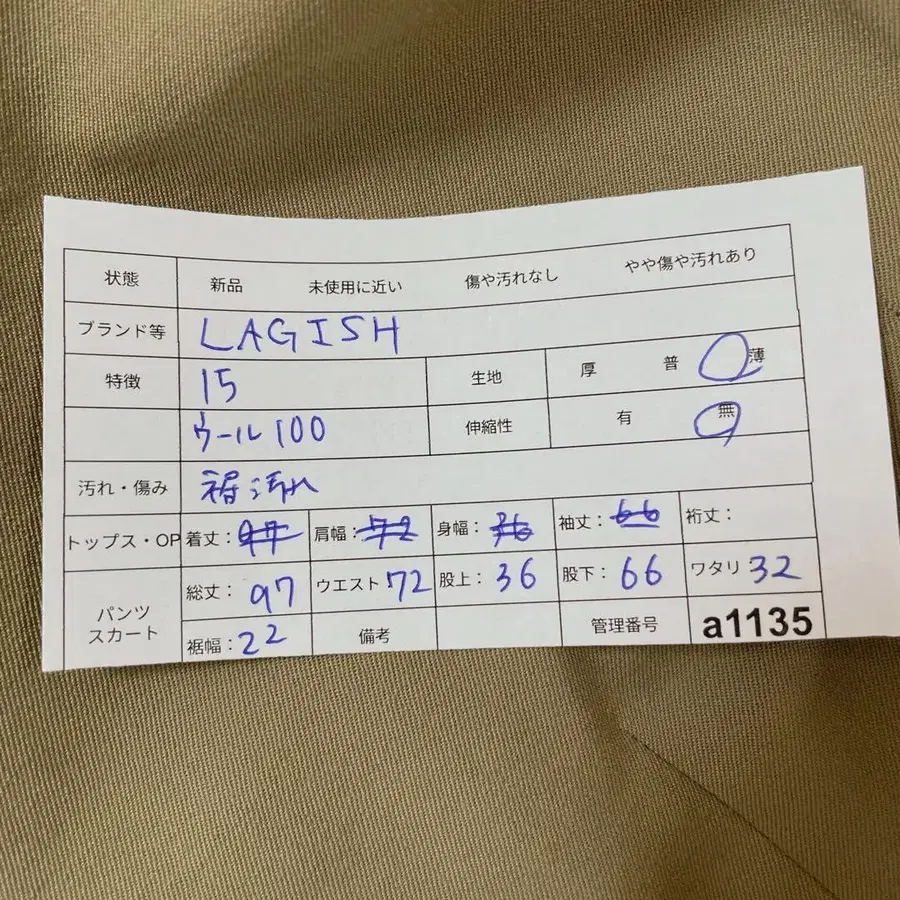 状態 新品 未使用に近い 傷や汚れなし やや傷や汚れあり
ブランド等 LAGISH
特徴 15 生地 厚 普 薄
ウール100 伸縮性 有 無
汚れ・傷み 裾汚れ
トップス・OP 着丈: 97 肩幅: 72 身幅: 36 袖丈: 66 裄丈:
パンツ スカート 総丈: 97 ウエスト 72 股上: 36 股下: 66 ワタリ 32
裾幅: 22 備考 管理番号 a1135